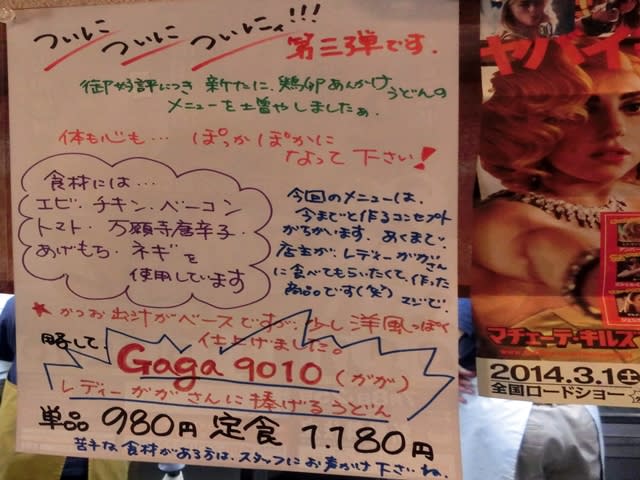 ついに ついに ついにィ!!!
第三弾です.
御好評につき 新たに、鶏卵あんかけうどんの
メニューを増やしましたぁ.
体も心も… ぽっかぽかに
なって下さい!
食材には…
エビ・チキン・ベーコン
トマト・万願寺唐辛子・
あげもち・ネギを
使用しています
今回のメニューは、
今までと作るコンセプト
がちがいます。あくまで、
店主が、レディーガガさん
に食べてもらいたくて、作った
商品です(笑)マジで.
★かつお出汁がベースですが、少し洋風っぽく
仕上げました。
略して、
Gaga 9010 (がが)
レディーガガさんに捧げるうどん
単品 980円 定食 1.180円
苦手な食材がある方は、スタッフにお声かけ下さいね.
ヤバイ
マチェーテ・キルズ
2014.3.1 土
全国ロードショー